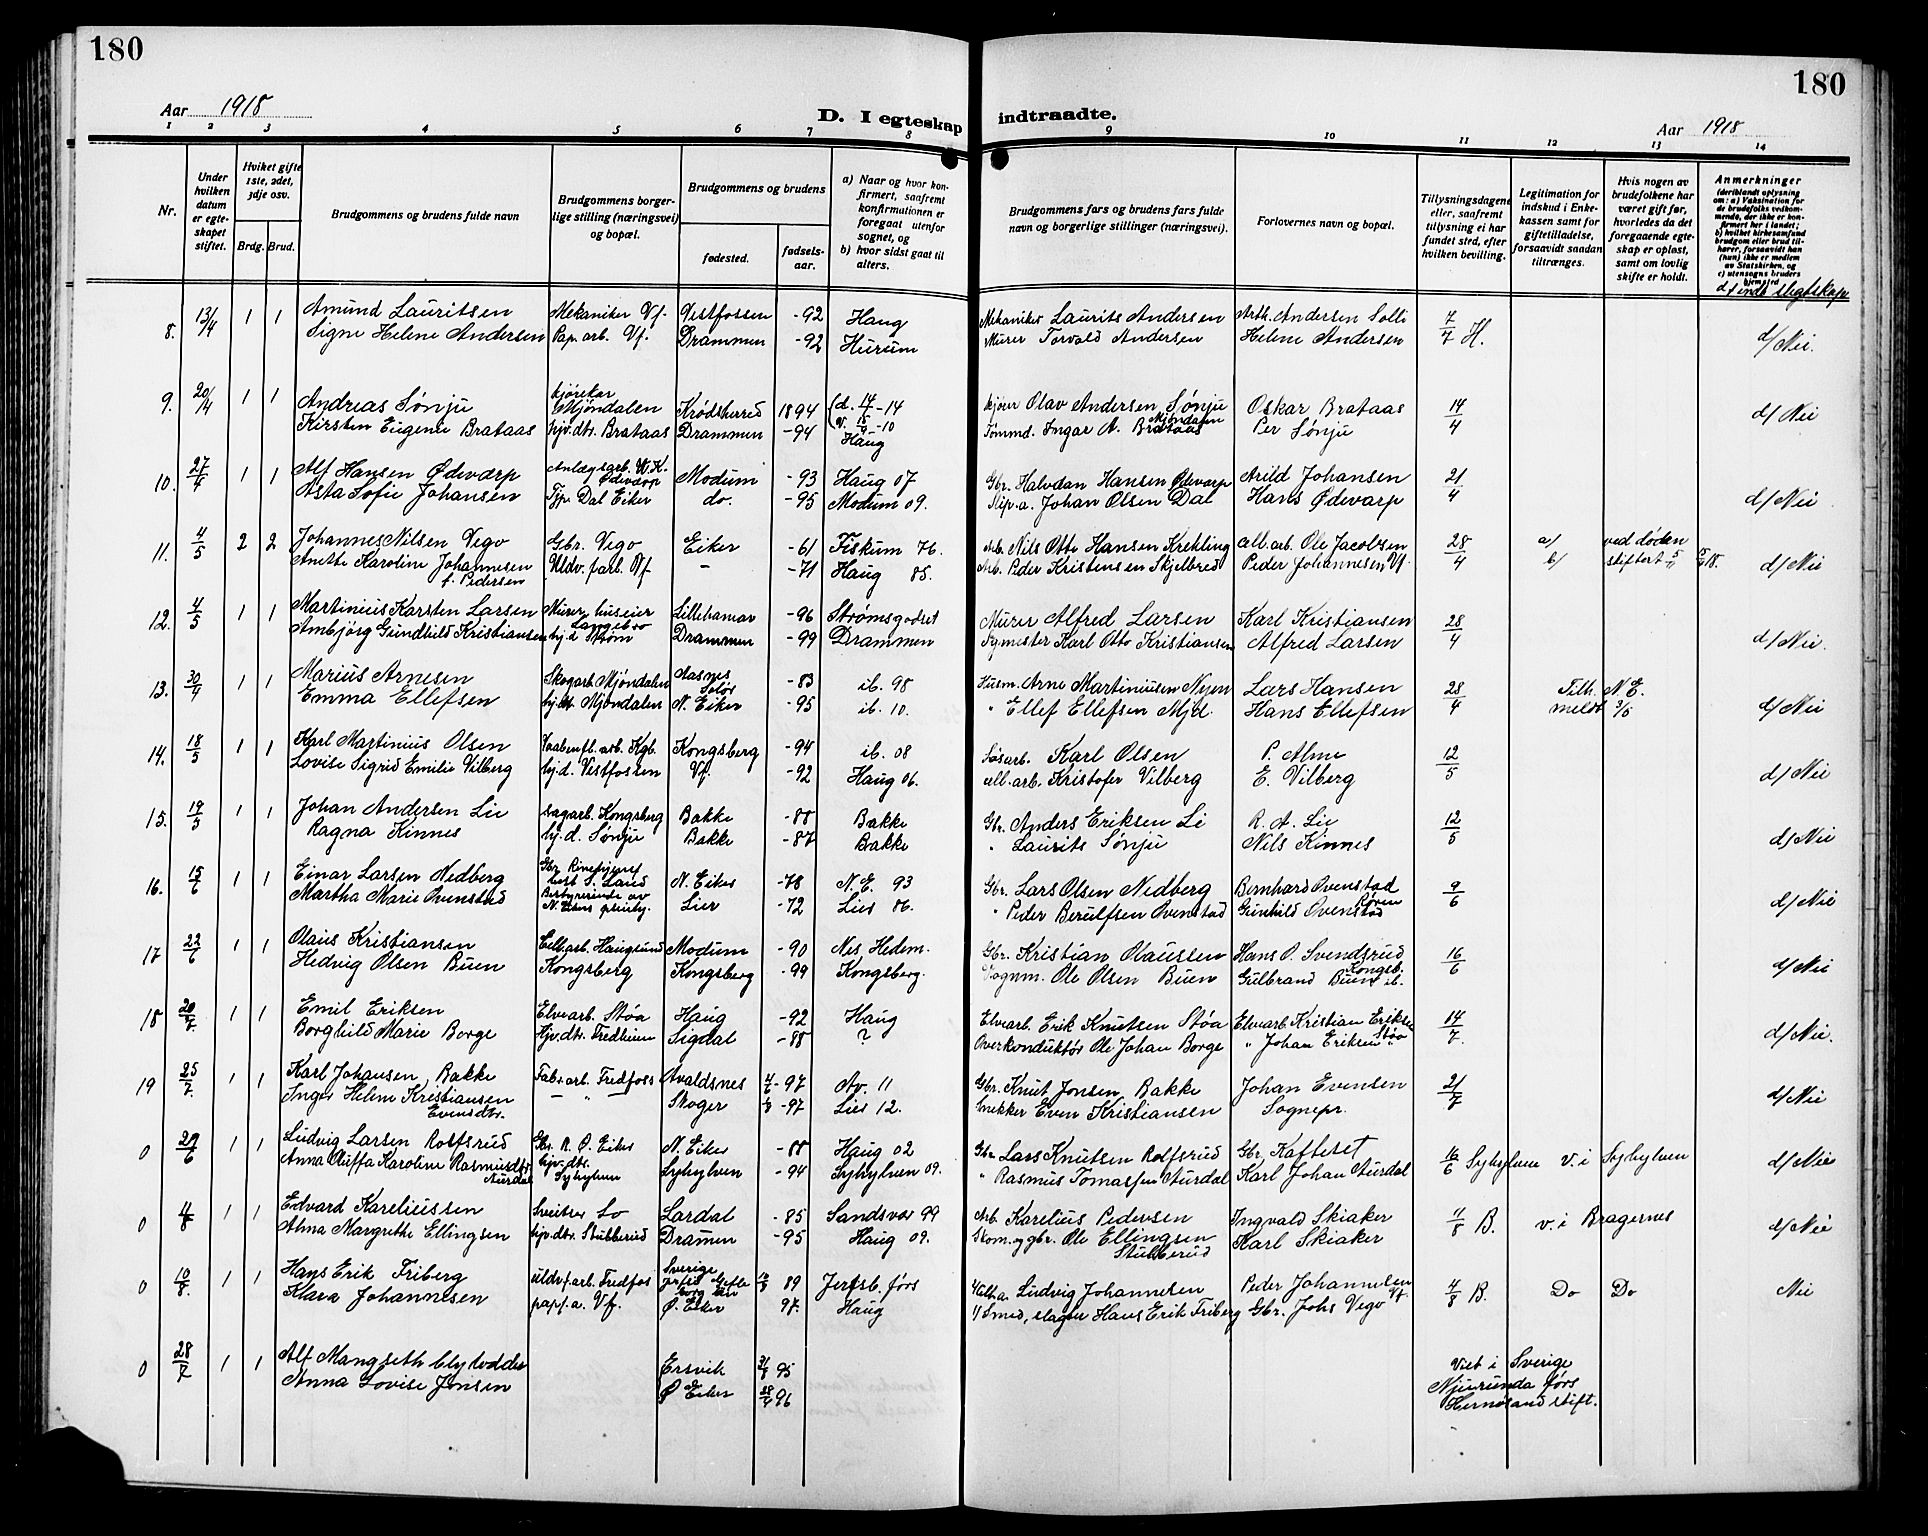 180
180
Aar 1918
D. I egteskap indtraadte.
Aar 1918
1 2 3 4 5 6 7 8 9 10 11 12 13 14
Nr.
Under hvilken datum er egteskapet stiftet.
Hvilket gifte 1ste, 2det, 3dje osv.
Brdg. Brud.
Brudgommens og brudens fulde navn
Brudgommens borgerlige stilling (næringsvei) og bopæl.
Brudgommens og brudens
fødested.
fødselsaar.
a) Naar og hvor konfirmert, saafremt konfirmationen er foregaat utenfor sognet, og
b) hvor sidst gaat til alters.
Brudgommens fars og brudens fars fulde navn og borgerlige stillinger (næringsvei).
Forlovernes navn og bopæl.
Tillysningsdagene eller, saafremt tillysning ei har fundet sted, efter hvilken bevilling.
Legitimation for indskud i Enkekassen samt for giftetilladelse, forsaavidt saadan tiltrænges.
Hvis nogen av brudefolkene har været gift før, hvorledes da det foregaaende egteskap er opløst, samt om lovlig skifte er holdt.
Anmerkninger (deriblandt oplysning om: a) Vaksination for de brudefolks vedkommende, der ikke er konfirmert her i landet; b) hvilket kirkesamfund brudgom eller brud tilhører, forsaavidt han (hun) ikke er medlem av Statskirken, og c) utensogns bruders hjemsted
d) ende slegtskap
8. 13/4 1 1 Amund Lauritsen Mekaniker Vf. Vestfossen -92 Haug Mekaniker Laurits Andersen Arth. Andersen Solli 7/7 H. d/ Nei.
Signe Helene Andersen Pap. arb. Vf. Drammen -92 Hurum Murer Torvald Andersen Helene Andersen
9. 20/4 1 1 Andreas Sønju kjørekar Mjøndalen Krødsherred 1894 Olav Andersen Sønju Mjøndalen Oskar Brataas 14/4 d/ Nei
Kirsten Eugenie Brataas hjv. dtr. Brataas Drammen -94 Haug Tømmd. Ingar A. Brataas Per Sønju
10. 27/4 1 1 Alf Hansen Ødevarp Anlægsarb. Ødevarp Modum -93 Haug 07 Gbr. Halvdan Hansen Ødevarp Arild Johansen 21/4 d/ Nei
Asta Sofie Johansen Tjp. Dal Eiker do. -95 Modum 09. Slip. a. Johan Olsen Dal Hans Ødevarp
11. 4/5 2 2 Johannes Nilsen Vego Gbr. Vego Eiker -61 Fiskum 76. Arb. Nils Otto Hansen Krekling cell. arb. Ole Jacobsen 28/4 a/ ved døden d/ Nei
Anette Karoline Johannesen f. Pedersen Uldv. f. arb. Vf - -71 Haug 85. Arb. Peder Kristensen Skjelbred Peder Johannesen Vf. b/ skiftet
12. 4/5 1 1 Martinius Karsten Larsen Murer huseier Langebro Lillehamar -96 Strømsgodset Murer Alfred Larsen Karl Kristiansen 28/4 d/ Nei.
Ambjørg Gundhild Kristiansen hj. d Strøm Drammen -99 Drammen Karl Otto Kristiansen Alfred Larsen
13. 30/4 1 1 Marius Arnesen Skogarb. Mjøndalen Aasnes Solør -83 ib. 98 Husm. Arne Martiniusen Nyen Lars Hansen 28/4 Tilh. N. E. d/ Nei
Emma Ellefsen hj. dt. Mjøndalen N. Eiker -95 ib. 10. " Ellef Ellefsen Mjd. Hans Ellefsen meldt 3/5
14. 18/5 1 1 Karl Martinius Olsen Vaabenfb. arb. Kgb. Kongsberg -94 ib. 08 Karl Olsen P. Alme 12/5 d/ Nei
Lovise Sigrid Emilie Vilberg hj. d. Vestfossen Vf. -92 Haug 06. cell. arb. Kristofer Vilberg E. Vilberg
15. 19/5 1 1 Johan Andersen Lie sagarb. Kongsberg Bakke -88 Bakke Gbr. Anders Eriksen Li R. A. Lie 12/5 d/ Nei
Ragna Kinnes hj. d. Sønju Bakke -87 Bakke " Laurits Sønju Nils Kinnes
16. 15/6 1 1 Einar Larsen Nedberg N. Eiker -78 N. E. 93 Gbr. Lars Olsen Nedberg Bernhard Ovenstad 9/6 d/ Nei
Martha Marie Ovenstad Bestyrerinde av Lier -72 Lier 86. " Peder Berulfsen Ovenstad Gunhild Ovenstad
17 22/6 1 1 Olaus Kristiansen Cell. arb. Haugsund Modum -90 Nes Hedem. Gbr. Kristian Olaussen Hans O. Svendsrud Kongsb. 16/6 d/ Nei
Hedvig Olsen Buen Kongsberg Kongsberg -99 Kongsberg. Vognm. Ole Olsen Buen Gulbrand Buen ib.
18 20/7 1 1 Emil Eriksen Elvearb. Støa Haug -92 Haug Elvearb. Erik Knutsen Støa Elvearb Kristian Eriksen Støa 14/7. d/ Nei.
Borghild Marie Borge Hjv. dtr. Fredheim Sigdal -88 ? Overkonduktør Ole Johan Borge " Johan Eriksen "
19 25/7. 1 1 Karl Johansen Bakke Fabr. arb. Fredfoss Avaldsnes -97 Av. 11 Gbr. Knut Jonsen Bakke Johan Evensen 21/7 d/ Nei
Inger Helene Kristiansen Evensdtr. - " - Skoger -97 Lier 12. Snekker Even Kristiansen Sognepr.
0 29/6 1 1 Ludvig Larsen Rolfsrud Gbr. Ø. Eiker N. Eiker -88 Haug 02 Gbr. Lars Knutsen Rolfsrud Gbr. Kafteset 16/6 Sykylven v. i Sykylven d/ Nei
Anna Karoline Rasmusdtr Aurdal hjv. dtr. Sykylven Sykylven -94 Sykylven 09. " Rasmus Tomassen Aurdal Karl Johan Aurdal
0 4/8 1 1 Edvard Kareliussen Sveitser Lo Lardal -85 Sandsvær 99 Arb. Karelius Pedersen Ingvald Skiaker 11/8 B. v. i Bragernes d/ Nei
Alma Margrethe Ellingsen hjv. dtr. Stubberud Dramen -95 Haug 09. Skom. og gbr. Ole Ellingsen Stubberud Karl Skiaker
0 10/8. 1 1 Hans Erik Friberg uldvf. arb. Fredfos Sverige 89 Ludvig Johannesen Peder Johannesen Vf. 4/8 B. Do Do Nei
Klara Johannesen papf. a. Vf. Ø. Eiker 97. Haug Smed, Hans Erik Friberg Gbr. Johs Vego
0 28/7 1 1 Alf Mangseth Ersvik 95 Viet i Sverige
Anna Lovise Jonsen Ø Eiker 96 Njurunda førs
Hernøsand stift.